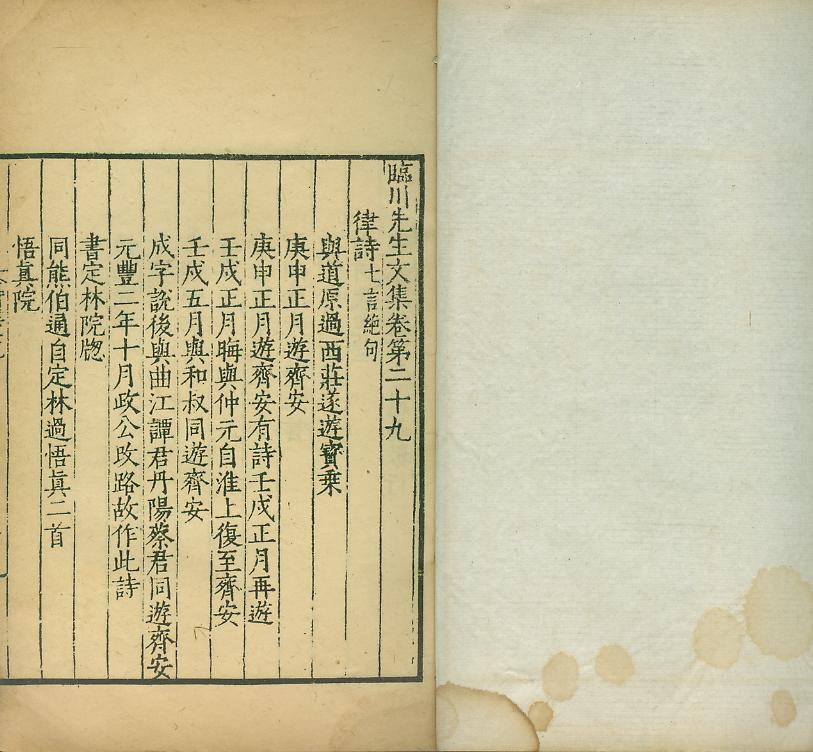 臨川先生文集卷第二十九
律詩七言絶句
與道原過西莊遂遊寶乘
庚申正月遊齊安
庚申正月遊齊安有詩壬戌正月再遊
壬戌正月晦與仲元自淮上復至齊安
壬戌五月與和叔同遊齊安
成字說後與曲江譚君丹陽蔡君同遊齊安
元豐二年十月政公改路故作此詩
書定林院牕
同熊伯通自定林過悟真二首
悟真院